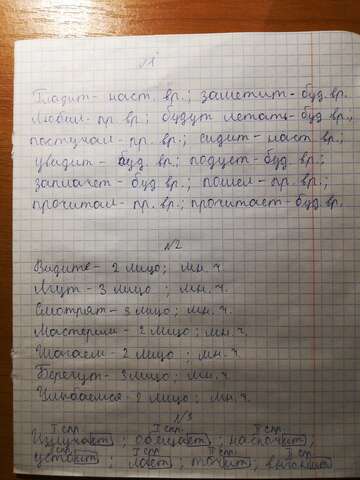 №1
Гладит - наст. вр.; заметит - буд. вр.
Любил - пр. вр.; будут летать - буд. вр.
постучал - пр. вр.; сидит - наст. вр.,
увидит - буд. вр.; подует - буд. вр.;
заплачет - буд. вр.; пошел - пр. вр.;
прочитал - пр. вр.; прочитает - буд. вр.
№2
Видите - 2 лицо; мн. ч.
Лгут - 3 лицо; мн. ч.
Смотрят - 3 лицо; мн. ч.
Мастерим - 2 лицо; мн. ч.
Шагаем - 2 лицо; мн. ч.
Берегут - 3 лицо; мн. ч.
Улыбаемся - 2 лицо; мн. ч.
№3
I спр. I спр. II спр.
Излучает; обещают;
I спр. II спр. II спр.
лает; точит;